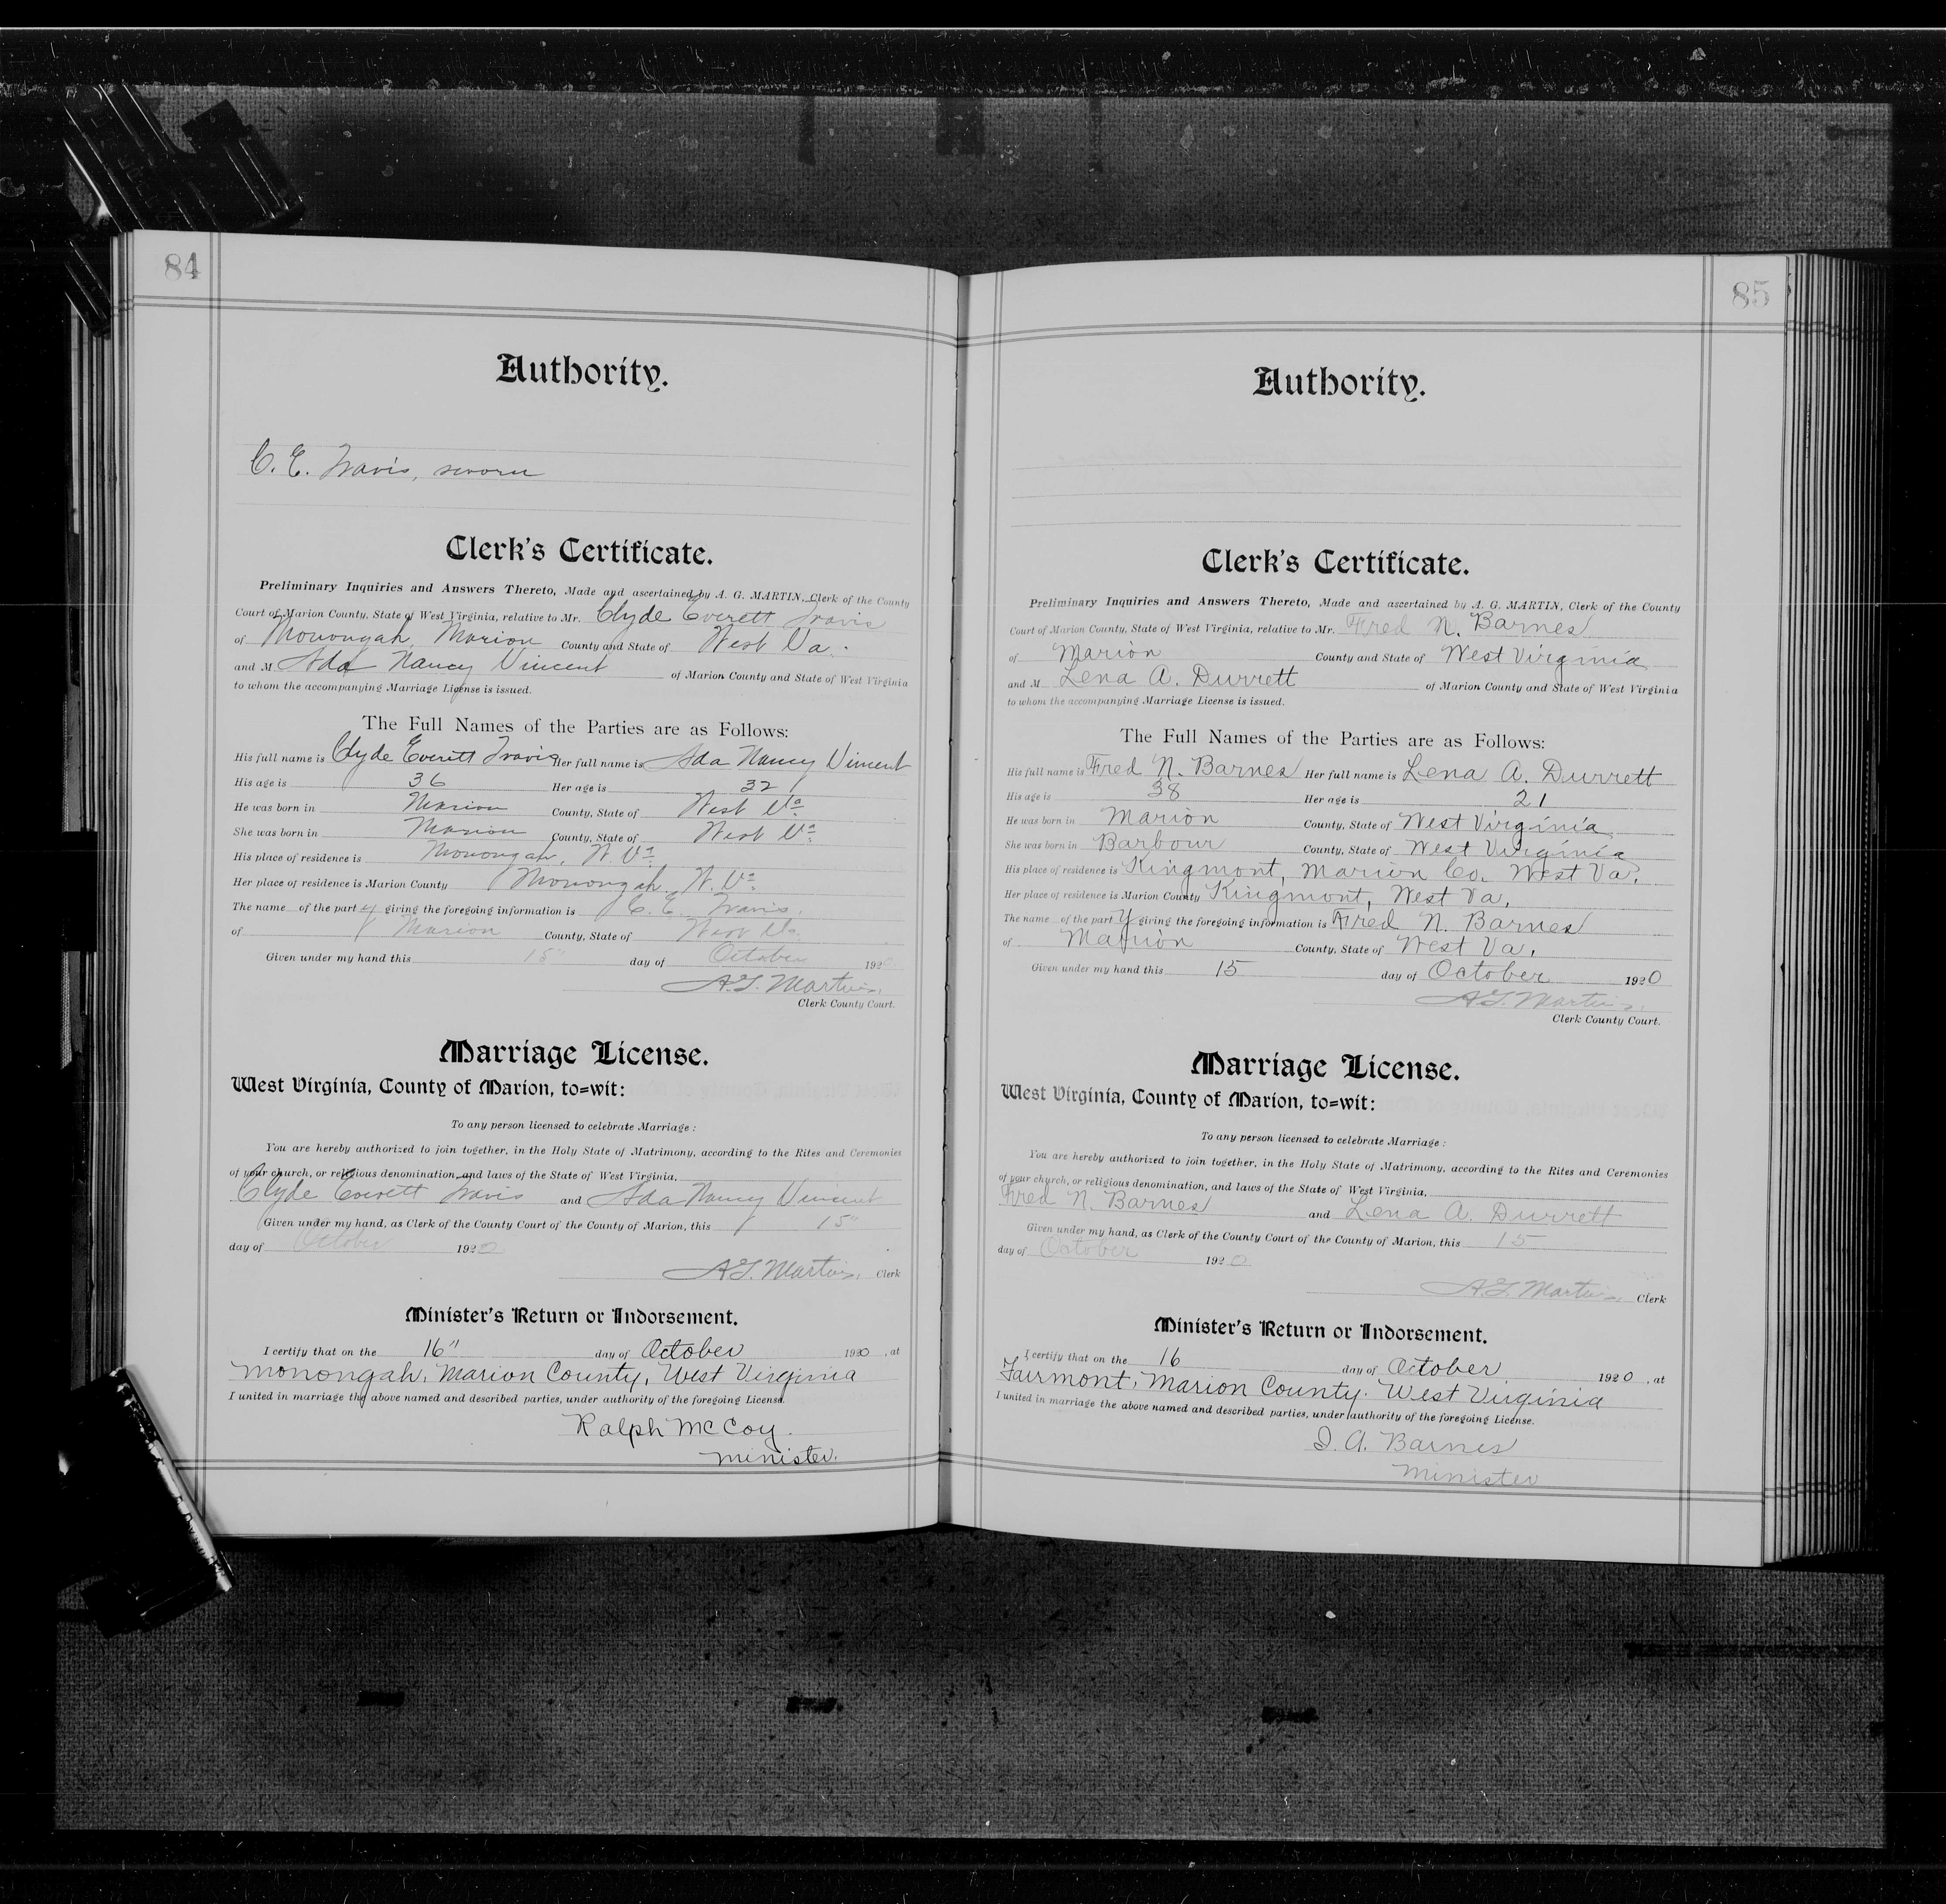 84
Authority.
C. E. Travis, sworn
Clerk's Certificate.
Preliminary Inquiries and Answers Thereto, Made and ascertained by A. G. MARTIN, Clerk of the County
Court of Marion County, State of West Virginia, relative to Mr. Clyde Everett Travis
of Monongah, Marion County and State of West Va.
and M Ada Nancy Vincent of Marion County and State of West Virginia
to whom the accompanying Marriage License is issued.
The Full Names of the Parties are as Follows:
His full name is Clyde Everett Travis Her full name is Ada Nancy Vincent
His age is 36 Her age is 32
He was born in Marion County, State of West Va.
She was born in Marion County, State of West Va.
His place of residence is Monongah, W. Va.
Her place of residence is Marion County Monongah, W. Va.
The name of the party giving the foregoing information is C. E. Travis.
of Marion County, State of West Va.
Given under my hand this 15" day of October 1920
A. G. Martin,
Clerk County Court.
Marriage License.
West Virginia, County of Marion, to=wit:
To any person licensed to celebrate Marriage:
You are hereby authorized to join together, in the Holy State of Matrimony, according to the Rites and Ceremonies
of your church, or religious denomination, and laws of the State of West Virginia,
Clyde Everett Travis and Ada Nancy Vincent
Given under my hand, as Clerk of the County Court of the County of Marion, this 15"
day of October 1920
A. G. Martin, Clerk
Minister's Return or Indorsement.
I certify that on the 16" day of October 1920, at
Monongah, Marion County, West Virginia
I united in marriage the above named and described parties, under authority of the foregoing License.
Ralph McCoy.
Minister.
85
Authority.
Clerk's Certificate.
Preliminary Inquiries and Answers Thereto, Made and ascertained by A. G. MARTIN, Clerk of the County
Court of Marion County, State of West Virginia, relative to Mr. Fred N. Barnes
of Marion County and State of West Virginia
and M Lena A. Durrett of Marion County and State of West Virginia
to whom the accompanying Marriage License is issued.
The Full Names of the Parties are as Follows:
His full name is Fred N. Barnes Her full name is Lena A. Durrett
His age is 38 Her age is 21
He was born in Marion County, State of West Virginia
She was born in Barbour County, State of West Virginia
His place of residence is Kingmont, Marion Co. West Va.
Her place of residence is Marion County Kingmont, West Va.
The name of the party giving the foregoing information is Fred N. Barnes
of Marion County, State of West Va.
Given under my hand this 15 day of October 1920
A. G. Martin,
Clerk County Court.
Marriage License.
West Virginia, County of Marion, to=wit:
To any person licensed to celebrate Marriage:
You are hereby authorized to join together, in the Holy State of Matrimony, according to the Rites and Ceremonies
of your church, or religious denomination, and laws of the State of West Virginia,
Fred N. Barnes and Lena A. Durrett
Given under my hand, as Clerk of the County Court of the County of Marion, this 15
day of October 1920
A. G. Martin, Clerk
Minister's Return or Indorsement.
I certify that on the 16 day of October 1920, at
Fairmont, Marion County. West Virginia
I united in marriage the above named and described parties, under authority of the foregoing License.
I. A. Barnes
Minister